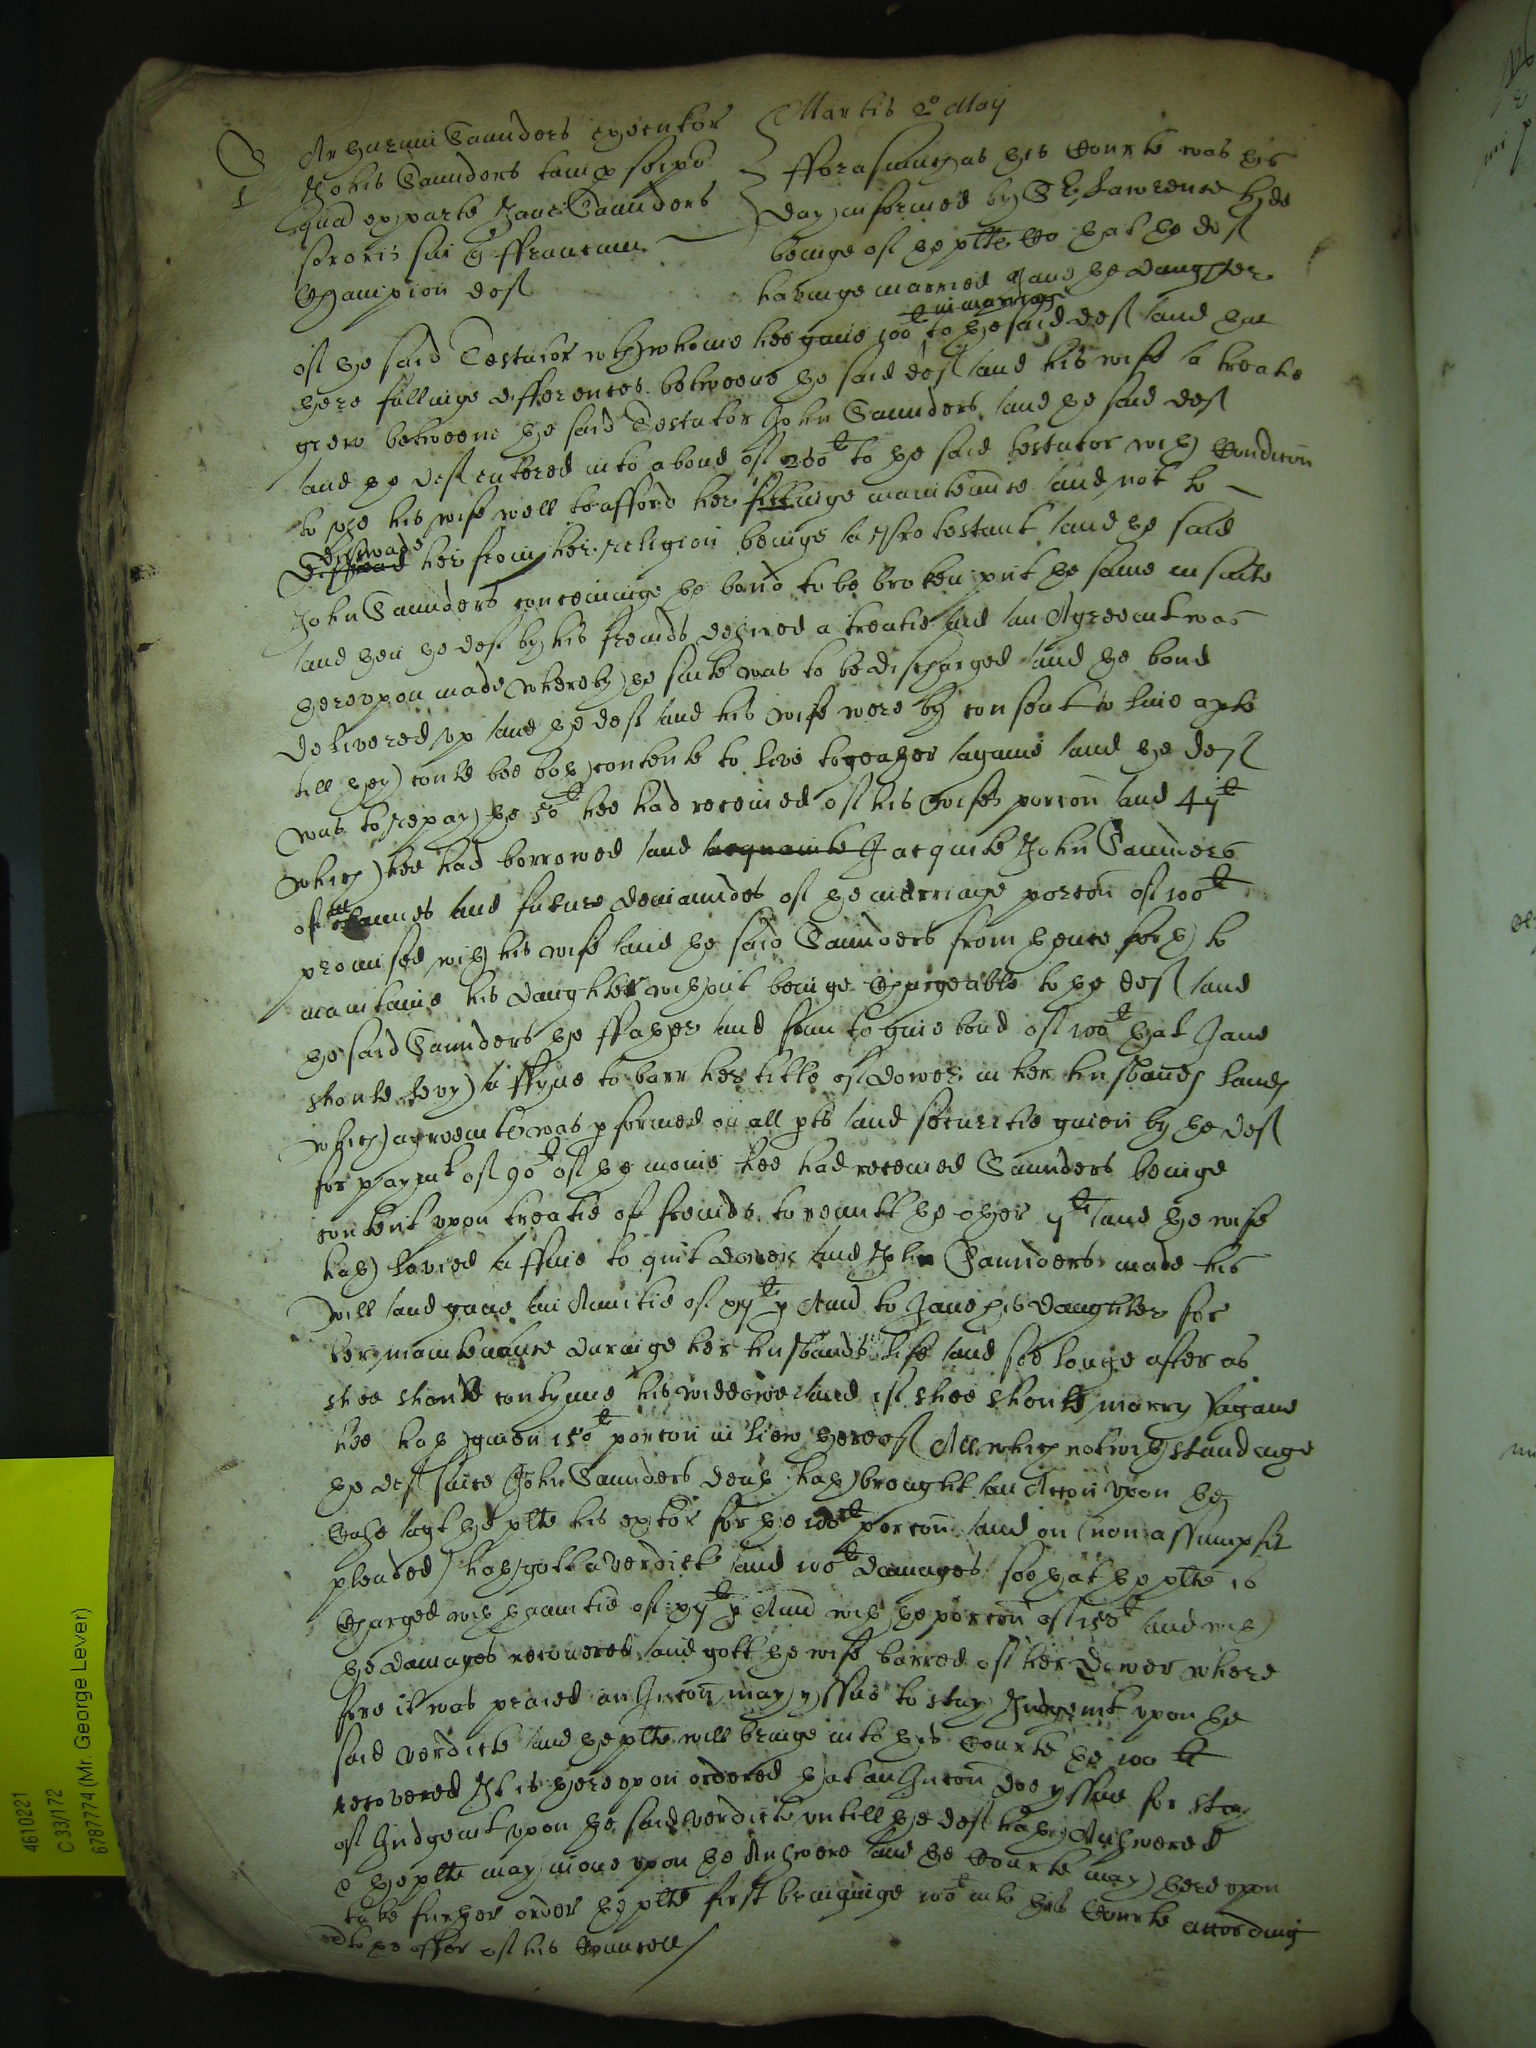 Martis 2o May
S
1
Arthurum Saunders executor
Johis Saunders tam p seipo
quã ex parte Jane Saunders
sororis sui q ffranc
Champion deft
fforasmuch as this Courte was this
day informed by Sr Lawrence Hyde
beinge of the plts Co that the deft
havinge married Jane the daughter
of the said Testator wth whome hee gave 100li in marriage to the said deft and that
there fallinge differences betweene the said deft and his wife a treatie
grew betweene the said Testator John Saunders and the said deft
and the deft entered into a bond of 200li to the said testator with Condicon
to use his wife well to afford her fittinge maintenance and not to
disswade her from her religion beinge a Protestant and the said
John Saunders conceiving the bond to be broken put the same in suite
and then the deft by his freinds desired a treatie and an Agreemt was
thereuppon made whereby the suite was to be discharged and the bond
delivered up and the deft and his wife were by consent to live apte
till they could bee both contente to live togeather againe and the deft
was to repay the 50li hee had received of his wifes porcon and 47li
which hee had borrowed and acquite John Saunders
of all claimes and future demaundes of the marriage porcon of 100li
promised with his wife and the said Saunders from thence forth to
maintaine his daughter without beinge chargeable to the deft and
the said Saunders the ffather and sonn to give bond of 100li that Jane
should levy a ffyne to barr her title of dower in her husbands lands
which agreemt was pformed on all pts and securitie given by the deft
for paymt of 90li of the monie hee had received Saunders beinge
content upon treatie of freinds to remitt the other 7li and the wife
hath levied a ffine to quit dower and John Saunders made his
will and gave an Anuitie of xijli p Ann to Jane his daughter for
her maintenance duringe her husbands life and soe longe after as
shee should contynue his widdowe and if shee should marry againe
hee hath given 150li porcon in liew thereof All which notwithstandinge
the deft since John Saunders death hath brought an Accon upon the
Case agt the plte his exctor for the 100li porcon and on (non assumpsit
pleaded) hath gott a verdict and 100li damages soe that the plte is
Charged with thanuitie of xijli p Ann with the porcon of 150li and with
the damages recovered and gott the wife barred of her Dower where
fore it was praied an Jnccon may yssue to stay Judgemt upon the
said verdicte and the plte will bringe into this Courte the 100li
recovered Jt is thereupon ordered that an Jnccon doe yssue for stay
of Judgemt upon the said verdicte untill the deft hath Answered
& the plte may move upon the Answere and the Courte may thereupon
take further order the plte first bringinge 100li into this Courte accordinge
to the offer of his Councell
4610221
C 33/172
6787774 (Mr. George Lever)